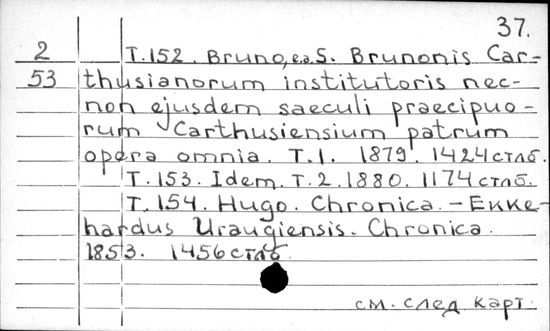 37.
2 T.152. Bruno, e.a. S. Brunonis Car-
53 thusianorum institutoris nec-
non ejusdem saeculi praecipuo-
rum Carthusiensium patrum
opera omnia. T.1. 1879. 1424 стлб.
T.153. Idem. T.2. 1880. 1174 стлб.
T.154. Hugo. Chronica. – Ekke-
hardus Uraugiensis. Chronica.
1853. 1456 стлб.
см. след карт.